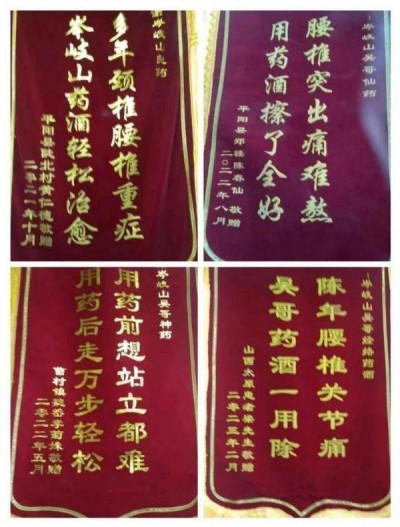 岑岐山良药
多年颈椎腰椎重症
岑岐山药酒轻松治愈
平阳县 北村黄仁德敬赠
二零二一年十月
岑岐山吴哥仙药
腰椎突出痛难熬
用药酒擦了全好
平阳县郑楼陈春仙 敬赠
二〇二二年八月
岑岐山吴哥神药
用药前想站立都难
用药后走万步轻松
村镇 桥李菊姝敬赠
二零二二年五月
岑岐山吴哥经络药酒
陈年腰椎关节痛
吴哥药酒一用除
山西太原患者 先生敬赠
二零二三年二月